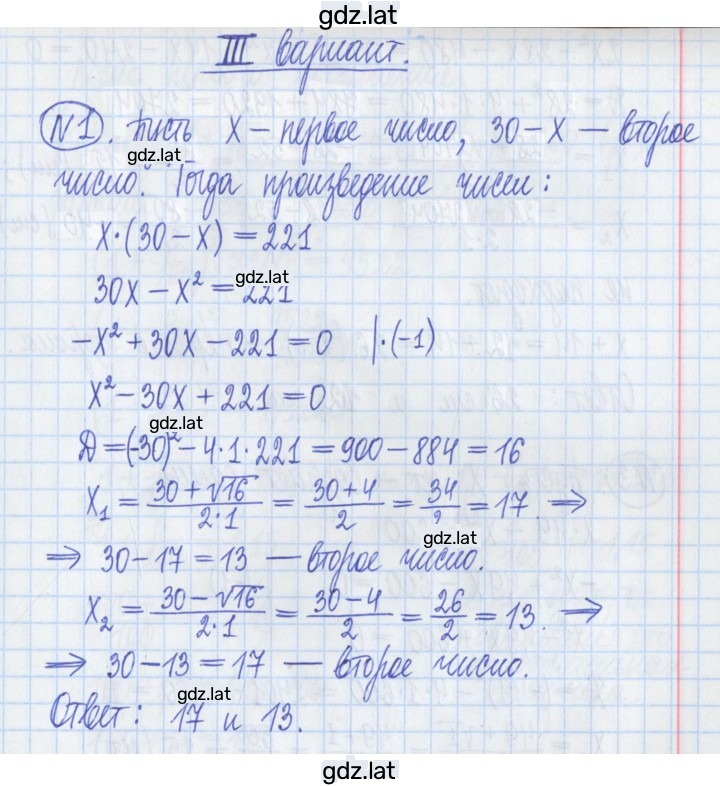 gdz.lat
III вариант.
№1. Пусть x – первое число, 30 – x – второе
gdz.lat
число. Тогда произведение чисел:
x·(30 – x) = 221
gdz.lat
30x – x² = 221
–x² + 30x – 221 = 0 |·(–1)
x² – 30x + 221 = 0
gdz.lat
D = (–30)² – 4·1·221 = 900 – 884 = 16
x₁ = (30 + √16)/(2·1) = (30 + 4)/2 = 34/2 = 17 ⇒
gdz.lat
⇒ 30 – 17 = 13 – второе число.
x₂ = (30 – √16)/(2·1) = (30 – 4)/2 = 26/2 = 13. ⇒
⇒ 30 – 13 = 17 – второе число.
gdz.lat
Ответ: 17 и 13.
gdz.lat